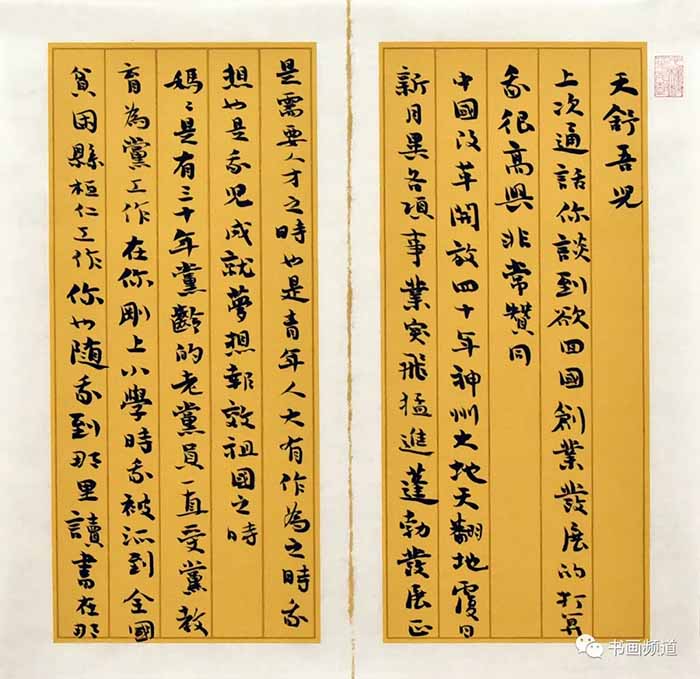 天舒吾兒
上次通話你談到欲回國創業發展的打算
我很高興非常贊同
中國改革開放四十年神州大地天翻地覆日
新月異各項事業突飛猛進蓬勃發展正
是需要人才之時也是青年人大有作為之時我
想也是我兒成就夢想報效祖國之時
媽〻是有三十年黨齡的老黨員一直受黨教
育為黨工作在你剛上小學時我被派到全國
貧困縣桓仁工作你也隨我到那里讀書在那
书画频道